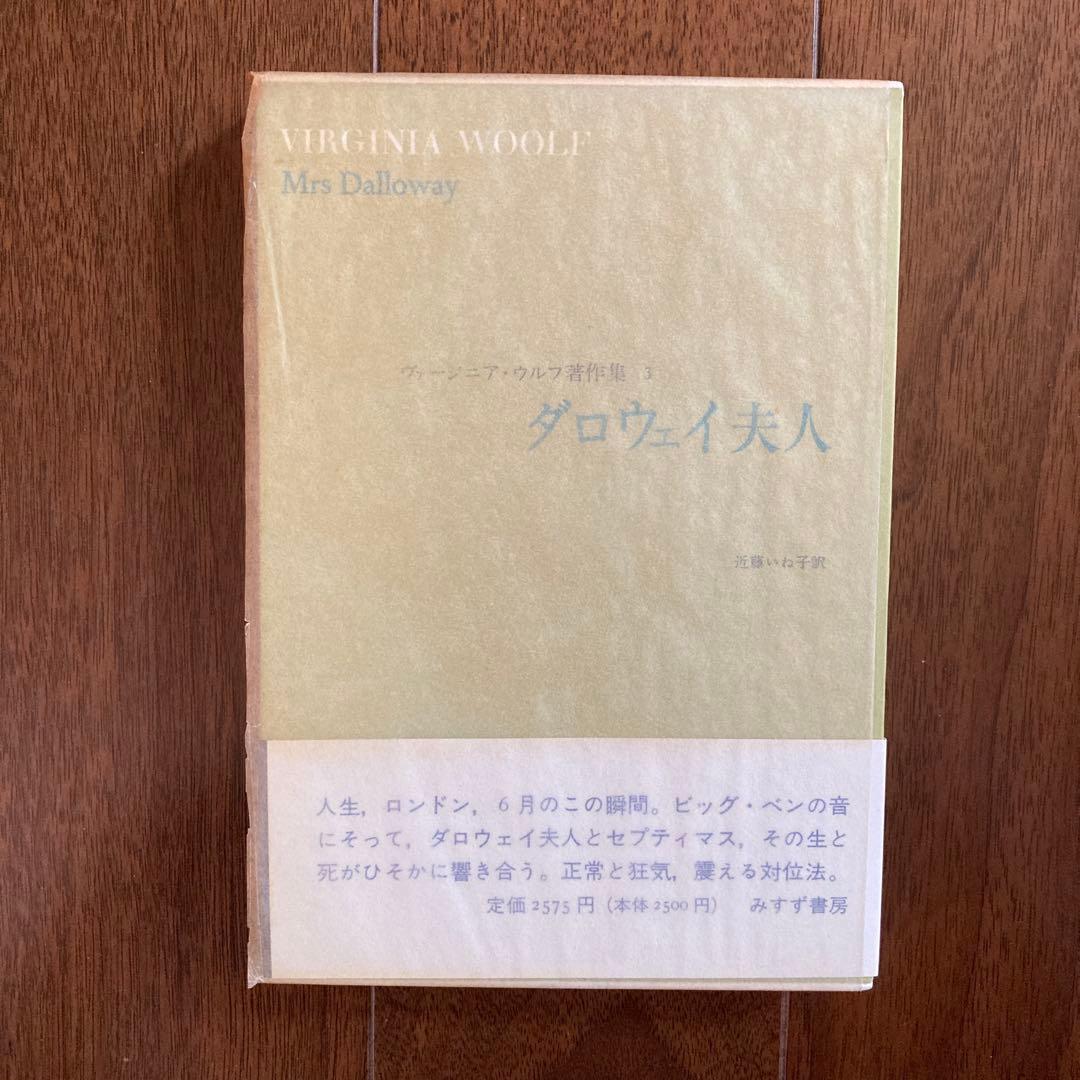 VIRGINIA WOOLF
Mrs Dalloway
ヴァージニア・ウルフ著作集 3
ダロウェイ夫人
近藤いね子訳
人生，ロンドン，6月のこの瞬間。ビッグ・ベンの音
にそって，ダロウェイ夫人とセプティマス，その生と
死がひそかに響き合う。正常と狂気，震える対位法。
定価2575円（本体2500円） みすず書房